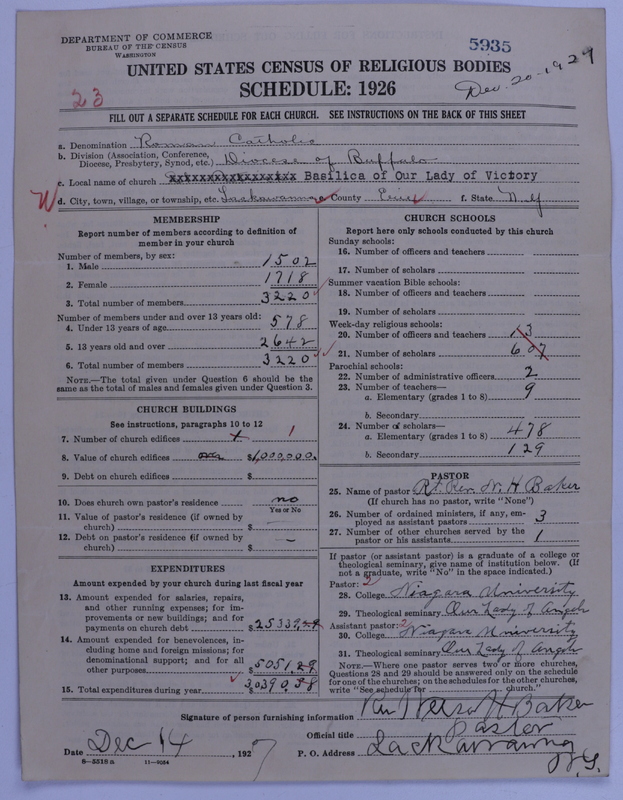 DEPARTMENT OF COMMERCE
BUREAU OF THE CENSUS
WASHINGTON
5935
Dec. 20-1927
UNITED STATES CENSUS OF RELIGIOUS BODIES
SCHEDULE: 1926
23
FILL OUT A SEPARATE SCHEDULE FOR EACH CHURCH. SEE INSTRUCTIONS ON THE BACK OF THIS SHEET
a. Denomination Roman Catholic
b. Division (Association, Conference,
Diocese, Presbytery, Synod, etc.) Diocese of Buffalo
c. Local name of church xxxxxxxxxxxxxxxxx Basilica of Our Lady of Victory
W
d. City, town, village, or township, etc. Lackawanna County Erie f. State N.Y
MEMBERSHIP
Report number of members according to definition of
member in your church
Number of members, by sex:
1. Male 1502
2. Female 1718
3. Total number of members 3220
Number of members under and over 13 years old:
4. Under 13 years of age 578
5. 13 years old and over 2642
6. Total number of members 3220
NOTE.—The total given under Question 6 should be
same as the total of males and females given under Question 3.
CHURCH BUILDINGS
See instructions, paragraphs 10 to 12
7. Number of church edifices 1
8. Value of church edifices $1,000,000.
9. Debt on church edifices $
10. Does church own pastor's residence no
Yes or No
11. Value of pastor's residence (if owned by
church) $
12. Debt on pastor's residence (if owned by
church) $ —
EXPENDITURES
Amount expended by your church during last fiscal year
13. Amount expended for salaries, repairs,
and other running expenses; for im-
provements or new buildings; and for
payments on church debt $25339.29
14. Amount expended for benevolences, in-
cluding home and foreign missions; for
denominational support; and for all
other purposes $5051.29
15. Total expenditures during year $30390.58
CHURCH SCHOOLS
Report here only schools conducted by this church
Sunday schools:
16. Number of officers and teachers
17. Number of scholars
Summer vacation Bible schools:
18. Number of officers and teachers
19. Number of scholars
Week-day religious schools:
20. Number of officers and teachers 13
21. Number of scholars 607
Parochial schools:
22. Number of administrative officers 2
23. Number of teachers—
a. Elementary (grades 1 to 8) 9
b. Secondary
24. Number of scholars—
a. Elementary (grades 1 to 8) 478
b. Secondary 129
PASTOR
25. Name of pastor Rt. Rev. N. H Baker
(If church has no pastor, write "None")
26. Number of ordained ministers, if any, em-
ployed as assistant pastors 3
27. Number of other churches served by the
pastor or his assistants 1
If pastor (or assistant pastor) is a graduate of a college or
theological seminary, give name of institution below. (If
not a graduate, write "No" in the space indicated.)
Pastor:
28. College Niagara University
29. Theological seminary Our Lady of Angels
Assistant pastor: 2
30. College Niagara University
31. Theological seminary Our Lady of Angels
NOTE.—Where one pastor serves two or more churches,
Questions 28 and 29 should be answered only on the schedule
for one of the churches; on the schedules for the other churches,
write "See schedule for church."
Signature of person furnishing information Rev Nelson H Baker
Official title Pastor
Date Dec 14, 1927 P. O. Address Lackawanna
N.Y.
8—5518a 11—9084